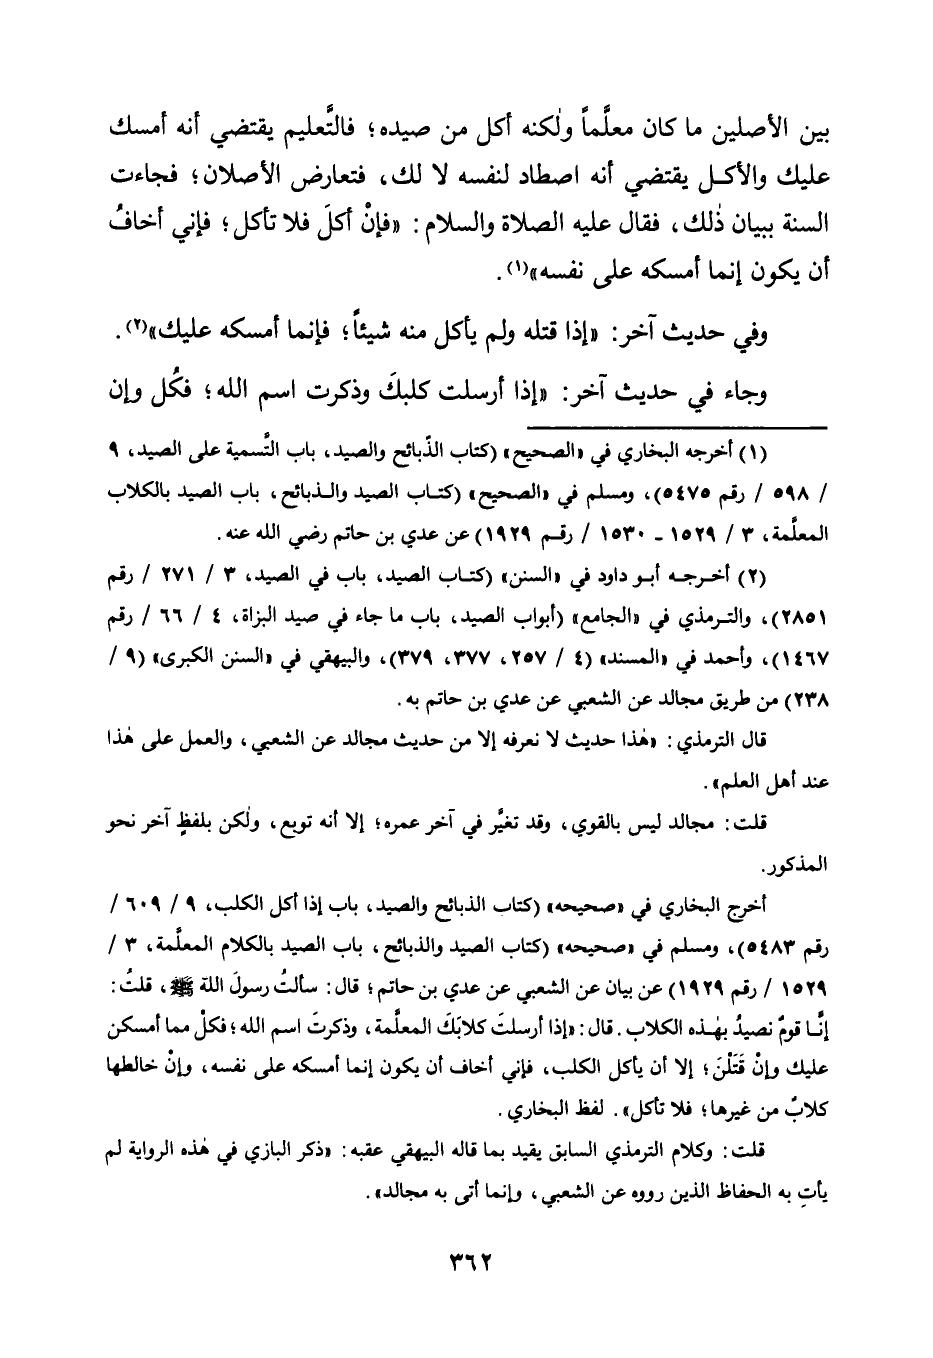 بين الأصلين ما كان معلَّماً ولٰكنه أكل من صيده؛ فالتَّعليم يقتضي أنه أمسك
عليك والأكل يقتضي أنه اصطاد لنفسه لا لك، فتعارض الأصلان؛ فجاءت
السنة ببيان ذٰلك، فقال عليه الصلاة والسلام: «فإنْ أكلَ فلا تأكل؛ فإني أخافُ
أن يكون إنما أمسكه على نفسه»(١).
وفي حديث آخر: «إذا قتله ولم يأكل منه شيئاً؛ فإنما أمسكه عليك»(٢).
وجاء في حديث آخر: «إذا أرسلت كلبكَ وذكرت اسم الله؛ فكُل وإن
(١) أخرجه البخاري في «الصحيح» (كتاب الذّبائح والصيد، باب التَّسمية على الصيد، ٩
/ ٥٩٨ / رقم ٥٤٧٥)، ومسلم في «الصحيح» (كتاب الصيد والذبائح، باب الصيد بالكلاب
المعلَّمة، ٣ / ١٥٢٩ - ١٥٣٠ / رقم ١٩٢٩) عن عدي بن حاتم رضي الله عنه.
(٢) أخرجه أبو داود في «السنن» (كتاب الصيد، باب في الصيد، ٣ / ٢٧١ / رقم
٢٨٥١)، والترمذي في «الجامع» (أبواب الصيد، باب ما جاء في صيد البزاة، ٤ / ٦٦ / رقم
١٤٦٧)، وأحمد في «المسند» (٤ / ٢٥٧، ٣٧٧، ٣٧٩)، والبيهقي في «السنن الكبرى» (٩ /
٢٣٨) من طريق مجالد عن الشعبي عن عدي بن حاتم به.
قال الترمذي: «هٰذا حديث لا نعرفه إلا من حديث مجالد عن الشعبي، والعمل على هٰذا
عند أهل العلم».
قلت: مجالد ليس بالقوي، وقد تغيَّر في آخر عمره؛ إلا أنه توبع، ولٰكن بلفظٍ آخر نحو
المذكور.
أخرج البخاري في «صحيحه» (كتاب الذبائح والصيد، باب إذا أكل الكلب، ٩ / ٦٠٩ /
رقم ٥٤٨٣)، ومسلم في «صحيحه» (كتاب الصيد والذبائح، باب الصيد بالكلام المعلَّمة، ٣ /
١٥٢٩ / رقم ١٩٢٩) عن بيان عن الشعبي عن عدي بن حاتم؛ قال: سألتُ رسولَ اللة ﷺ، قلتُ:
إنَّا قومٌ نصيدُ بهٰذه الكلاب. قال: «إذا أرسلتَ كلابَكَ المعلَّمة، وذكرتَ اسم الله؛ فكلْ مما أمسكن
عليك وإنْ قَتَلْنَ؛ إلا أن يأكل الكلب، فإني أخاف أن يكون إنما أمسكه على نفسه، وإنْ خالطها
كلابٌ من غيرها؛ فلا تأكل». لفظ البخاري.
قلت: وكلام الترمذي السابق يقيد بما قاله البيهقي عقبه: «ذكر البازي في هٰذه الرواية لم
يأتِ به الحفاظ الذين رووه عن الشعبي، وإنما أتى به مجالد».
٣٦٢